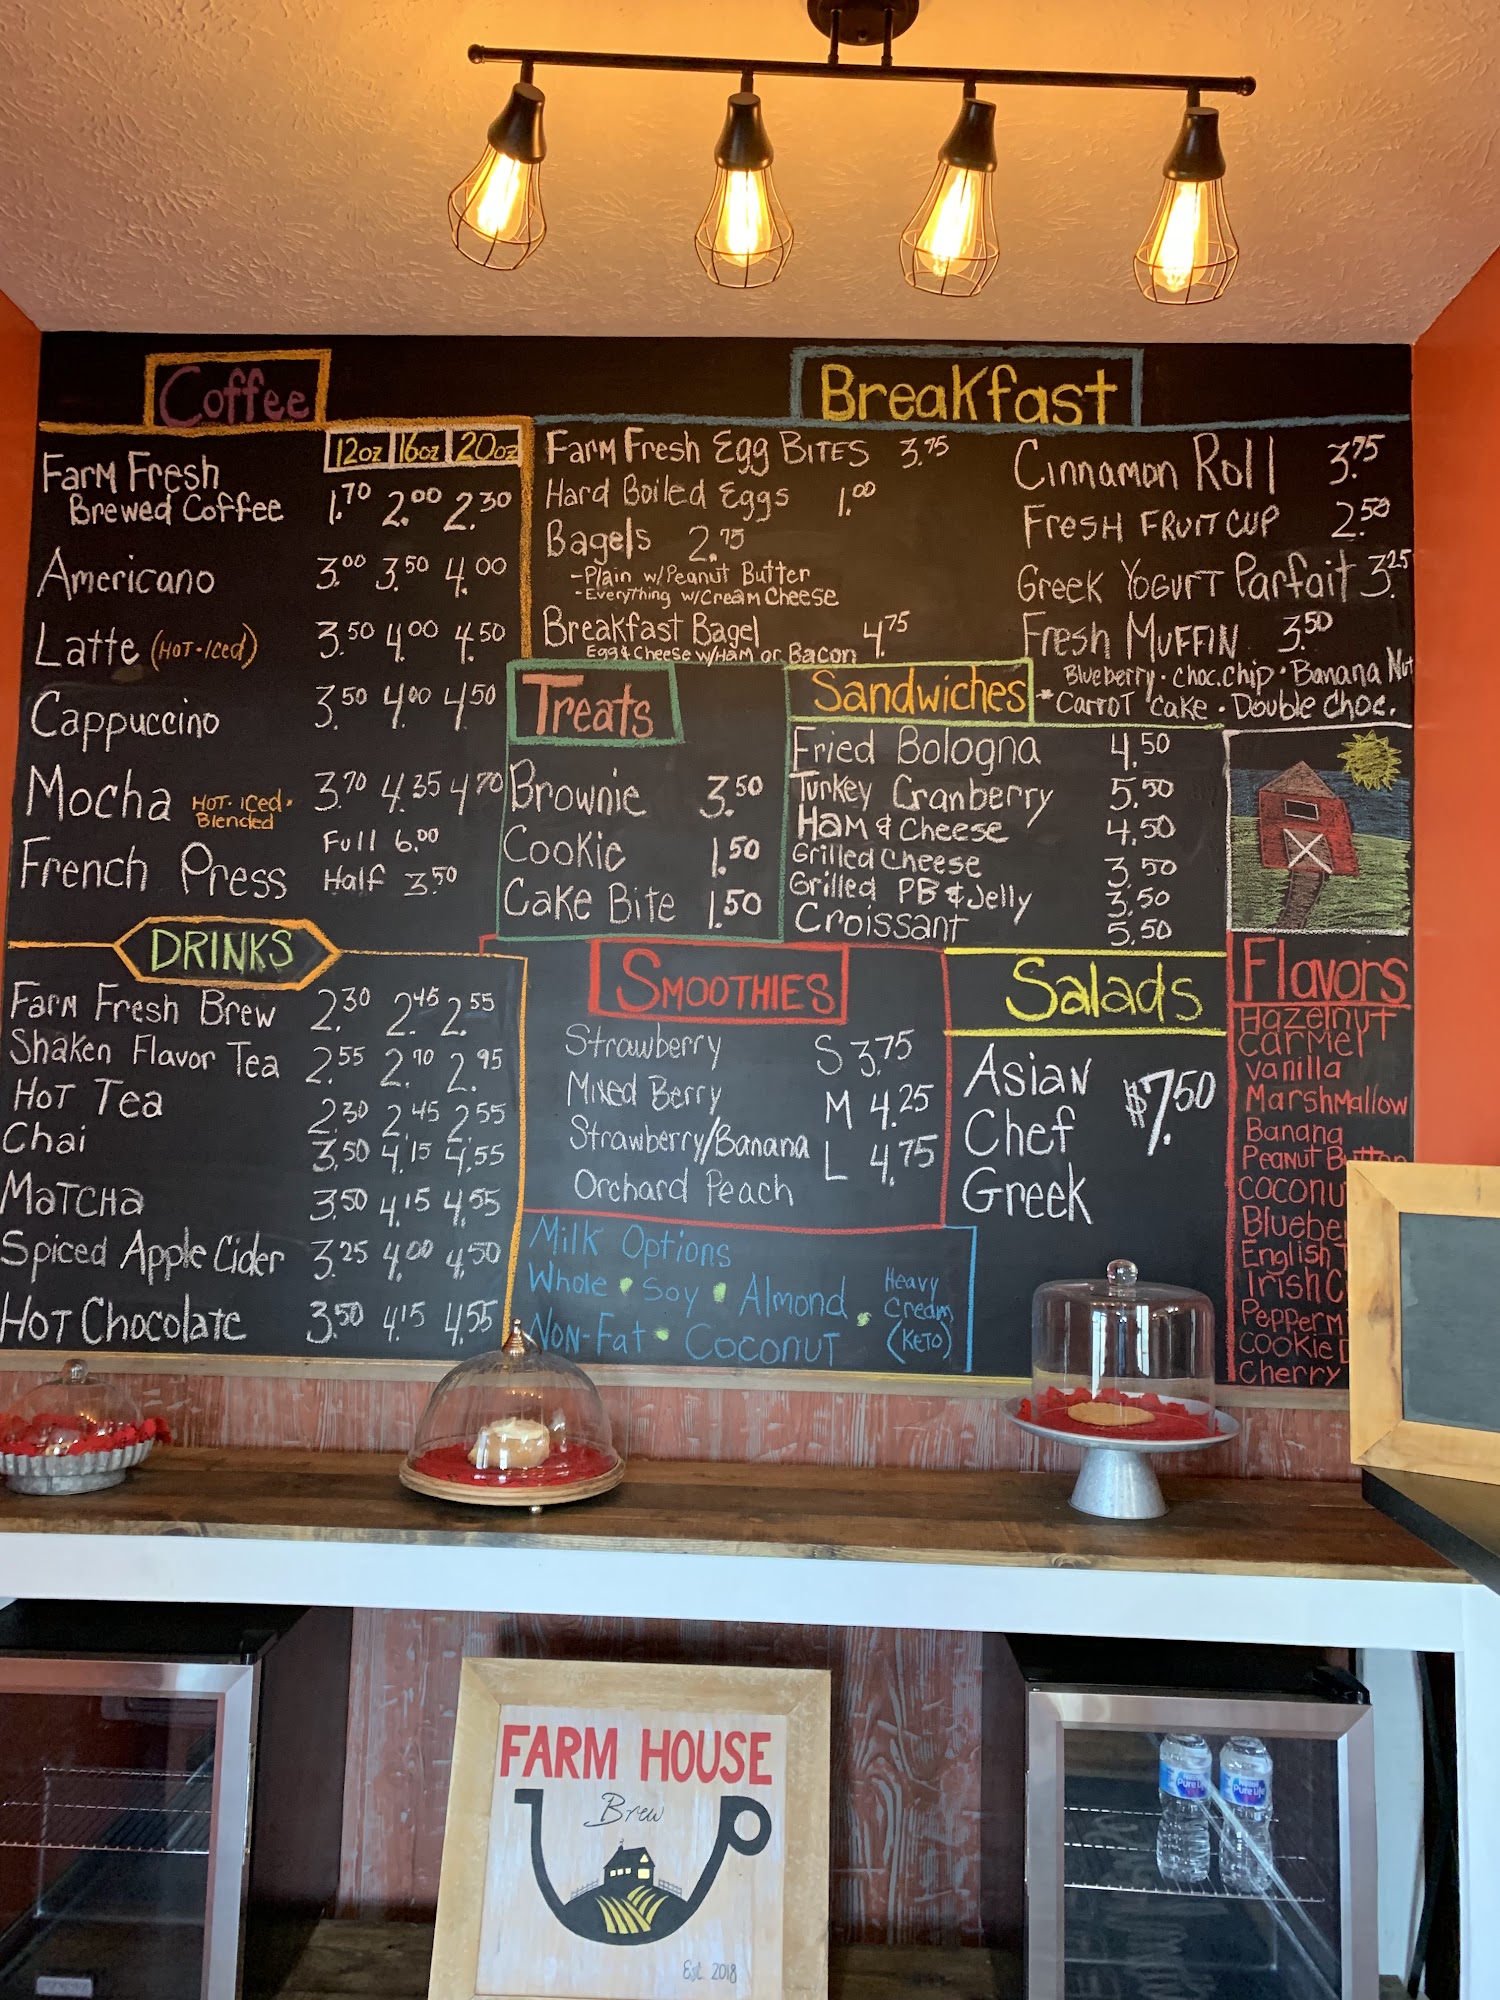 Coffee
12oz 16oz 20oz
Farm Fresh
Brewed Coffee 1.70 2.00 2.30
Americano 3.00 3.50 4.00
Latte (Hot·Iced) 3.50 4.00 4.50
Cappuccino 3.50 4.00 4.50
Mocha Hot·Iced· 3.70 4.35 4.70
Blended
French Press Full 6.00
Half 3.50
DRINKS
Farm Fresh Brew 2.30 2.45 2.55
Shaken Flavor Tea 2.55 2.70 2.95
Hot Tea 2.30 2.45 2.55
Chai 3.50 4.15 4.55
Matcha 3.50 4.15 4.55
Spiced Apple Cider 3.25 4.00 4.50
Hot Chocolate 3.50 4.15 4.55
Breakfast
Farm Fresh Egg Bites 3.75
Hard Boiled Eggs 1.00
Bagels 2.75
-Plain w/Peanut Butter
-Everything w/Cream Cheese
Breakfast Bagel 4.75
Egg & Cheese w/Ham or Bacon
Cinnamon Roll 3.75
Fresh Fruit Cup 2.50
Greek Yogurt Parfait 3.25
Fresh Muffin 3.50
Blueberry·Choc.Chip·Banana Nut
*Carrot Cake·Double Choc.
Treats
Brownie 3.50
Cookie 1.50
Cake Bite 1.50
Sandwiches
Fried Bologna 4.50
Turkey Cranberry 5.50
Ham & Cheese 4.50
Grilled Cheese 3.50
Grilled PB & Jelly 3.50
Croissant 5.50
Smoothies
Strawberry S 3.75
Mixed Berry M 4.25
Strawberry/Banana L 4.75
Orchard Peach
Milk Options
Whole · Soy · Almond · Heavy
Cream
Non-Fat · Coconut (Keto)
Salads
Asian $7.50
Chef
Greek
Flavors
Hazelnut
Carmel
Vanilla
Marshmallow
Banana
Peanut Butter
Coconu
Blueber
English T
Irish C
Pepperm
Cookie D
Cherry
FARM HOUSE
Brew
Est. 2018
Nestle
Pure Life
Nestle
Pure Life